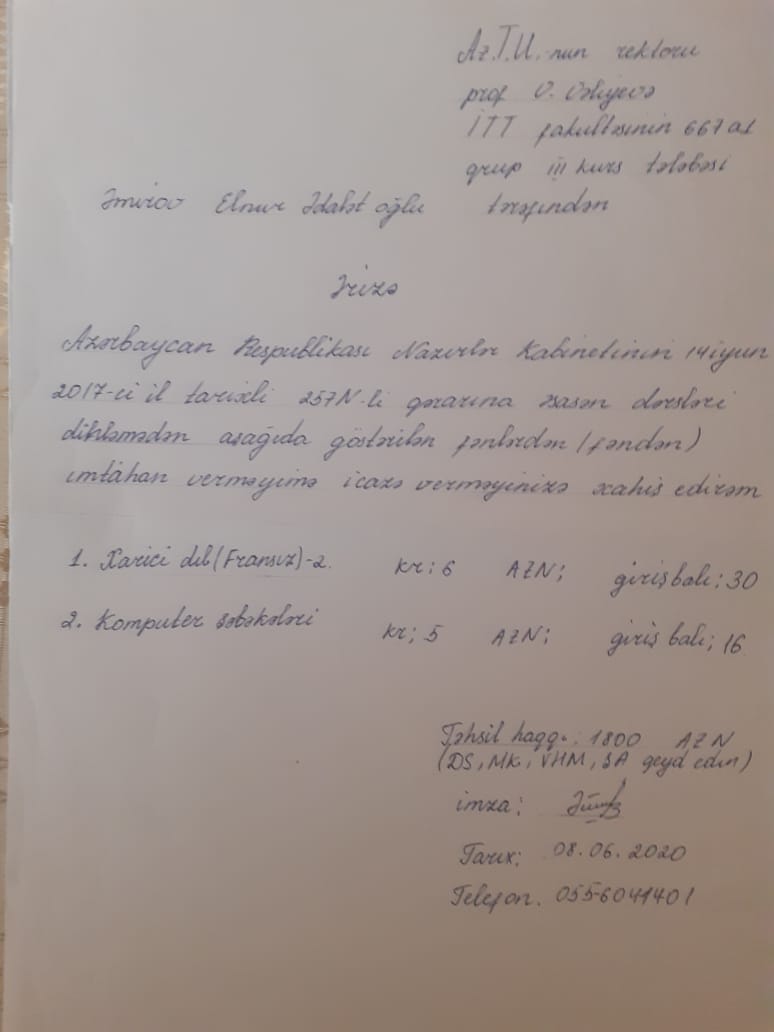 Az.T.U.-nun rektoru
prof V. Vəliyevə
İTT fakultəsinin 667 a1
qrup III kurs tələbəsi
Əmirov Elnur Ədalət oğlu tərəfindən
Ərizə
Azərbaycan Respublikası Nazirlər Kabinetinin 14 iyun
2017-ci il tarixli 257N-li qərarına əsasən dərsləri
dinləmədən aşağıda göstərilən fənlərdən (fəndən)
imtahan verməyimə icazə verməyinizə xahiş edirəm
1. Xarici dil (Fransız)-2. kr: 6 AZN; giriş balı: 30
2. Komputer şəbəkələri kr; 5 AZN; giriş balı; 16
Təhsil haqqı: 1800 AZN
(DS, MK, VHM, ŞA qeyd edin)
imza:
Tarix: 08.06.2020
Telefon. 0556041401